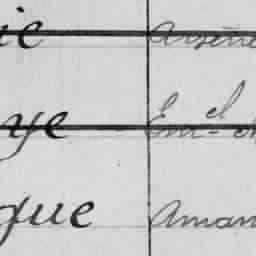 ie Arsène
ye Em. el
que Aman